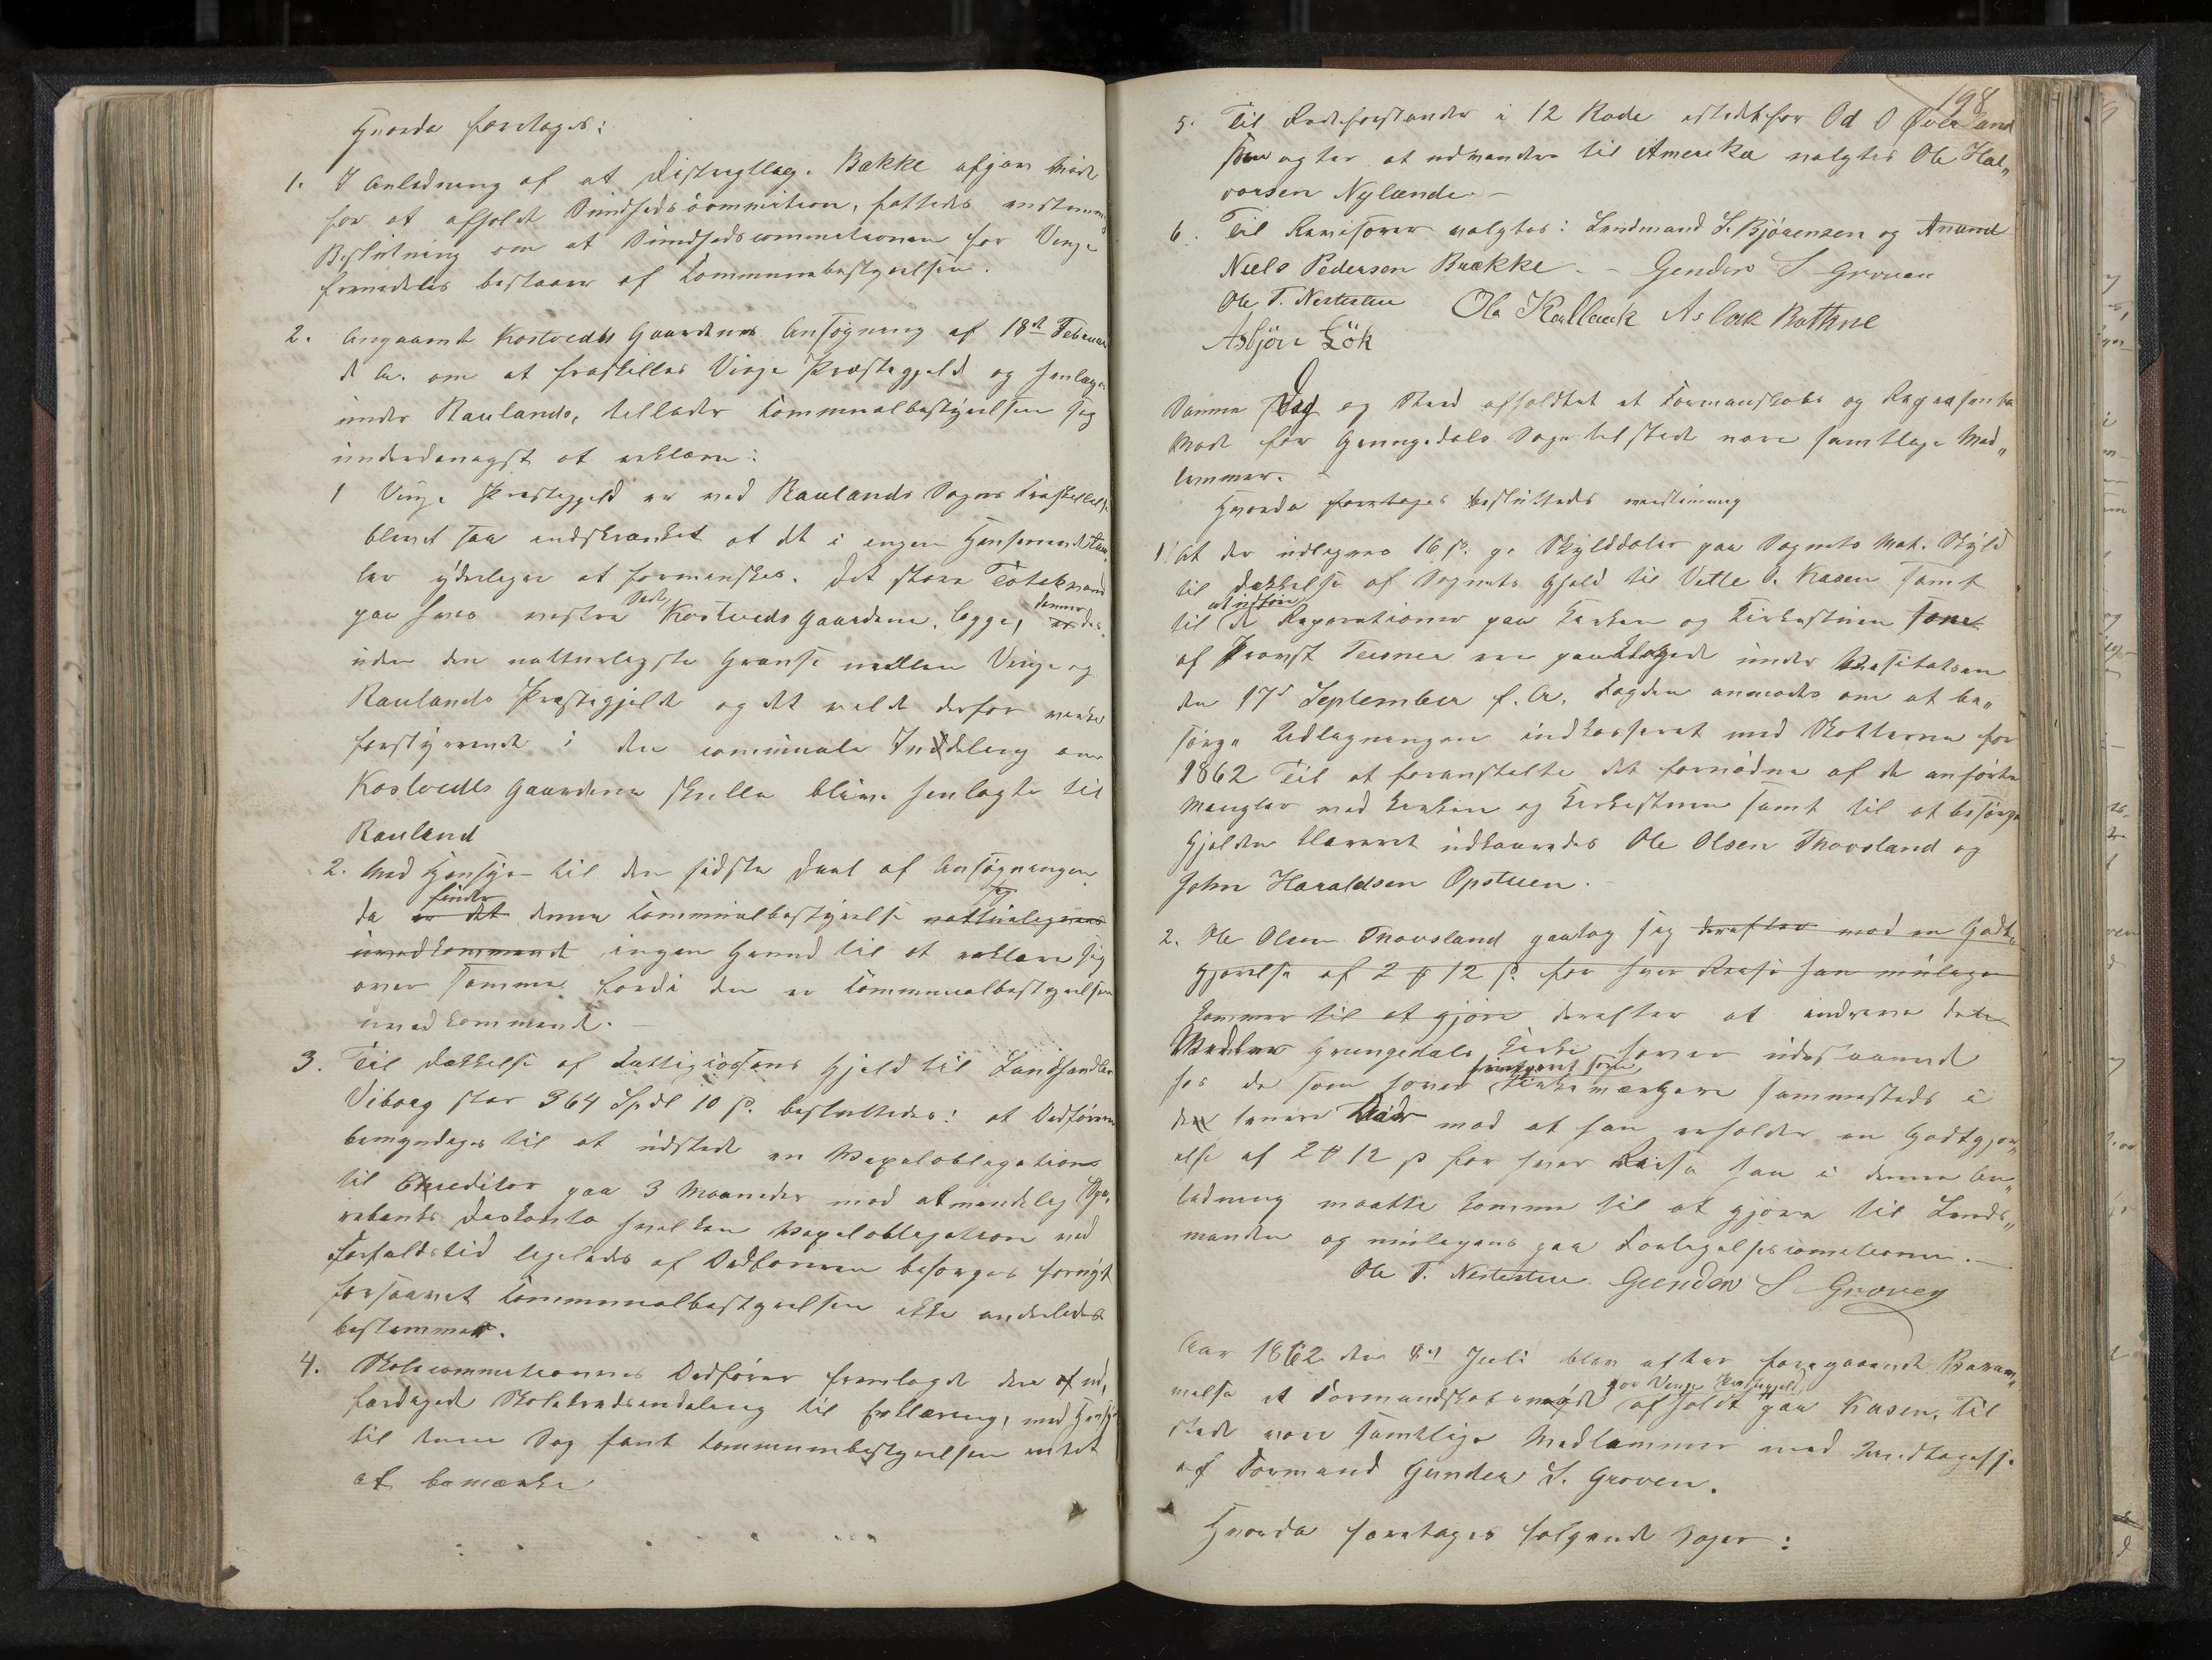 Hvorda foretoges:
1. I Anledning af at Distrigtlæge Bakke afgav Møde
for at afholde Sundhedscommission, fattedes enstemmig
Beslutning om at Sundhedscommissionen for Vinje
fremdeles bestaaer af Communebestyrelsen.
2. Angaaende Kostvedts Gaardenes Ansøgning af 18de Februar
d. A. om at fraskilles Vinje Præstegjeld og henlægges
under Raulands, tillader Communalbestyrelsen sig
underdanigst at erklære:
1 Vinje Præstegjeld er ved Raulands Sogns Fraskillelse
blevet saa indskrænket at det i ingen Henseende taa-
ler yderligere at formindskes. Det store Totakvand
paa hvis vestre Side Kostveds Gaardene ligge, er danner des-
uden den naturligste Grænse mellem Vinje og
Raulands Præstegjeld og det vilde derfor virke
forstyrrende i den communale Inddeling om
Kostvedts Gaardene skulle blive henlagte til
Rauland
2. Med Hensyn til den sidste Deel af Ansøgningen
da er det finder denne Communalbestyrelse naturligviis sig
uvedkommende ingen Grund til at erklære sig
over samme fordi den er Communalbestyrelsen
uvedkommende. —
3. Til Dækkelse af Fattigcassens Gjeld til Landhandler
Viborg stor 364 Spdl 10 s. besluttedes: at Ordføreren
bemyndiges til at udstede en Vexelobligation
til Creditor paa 3 Maaneder mod almindelig Spa-
rebanks Diskonto hvilken Vexelobligation ved
Forfaldstid ligeledes af Ordføreren besørges fornyet
forsaavidt Communalbestyrelsen ikke anderledes
bestemmer.
4. Skolecommissionens Ordfører fremlagde den af ud-
færdigede Skolekredsinddeling til Erklæring, med Hensyn
til denne Sag fandt Communebestyrelsen intet
at bemærke
198
5. Til Rodeforstander i 12 Rode istedetfor Od O Øverland
som agter at udvandre til Amerika valgtes Ole Hal„
vorsen Nylænde. —
6. Til Revisorer valgtes: Lendmand S. Bjørensen og Anund
Niels Pedersen Brække. — Gunder S Groven
Ole T. Nestestue Ole Kallevik Aslak Bothne
Asbjörn Lök
Samme Dag og Sted afholdtes et Formandskabs og Repræsentant
Møde for Grungedals Sogn tilstede vare samtlige Med„
lemmer.
Hvorda foretoges besluttedes eenstemmig
1. At der udlignes 16 s. pr Skylddaler paa Sognets Mat. Skyld
til Dækkelse af Sognets Gjeld til Vetle O. Kasen samt
til at udføre de Reparationer paa Kirken og Kirkestuen som
af Provst Teisner ere paaklagede under Visitatsen
den 17de September f. A. Fogden anmodes om at be„
sørge Udligningen indkasseret med Skatterne for
1862 Til at foranstalte det fornødne af de anførte
Mangler ved Kirken og Kirkestuen samt til at besørge
Gjelden klareret udkaaredes Ole Olsen Thovsland og
John Haraldsen Opstuen.
2. Ole Olsen Thovsland paatog sig derefter mod en Godt„
gjørelse af 2 ort 12 s. for hver Reise han muligens
kommer til at gjøre derefter at inddrive det
Grungedals Kirke haver udestaaende
hos de som haver fungeret som Kirkeværgere sammesteds i
den senere Tid mod at han erholder en Godtgjør„
else af 2 ort 12 s for hver Reise han i denne An„
ledning maatte komme til at gjøre til Lends„
manden og muligens paa Forligelsescomissionen. —
Ole T. Nestestue. Gunder S Groven
Aar 1862 den 8de Juli blev efter foregaaende Beram„
melse et Formandskabsmøde for Vinje Præstegjeld afholdt paa Kasen. Til
stede vare samtlige Medlemmer med Undtagelse
af Formand Gunder S. Groven.
Hvorda foretoges følgende Sager: